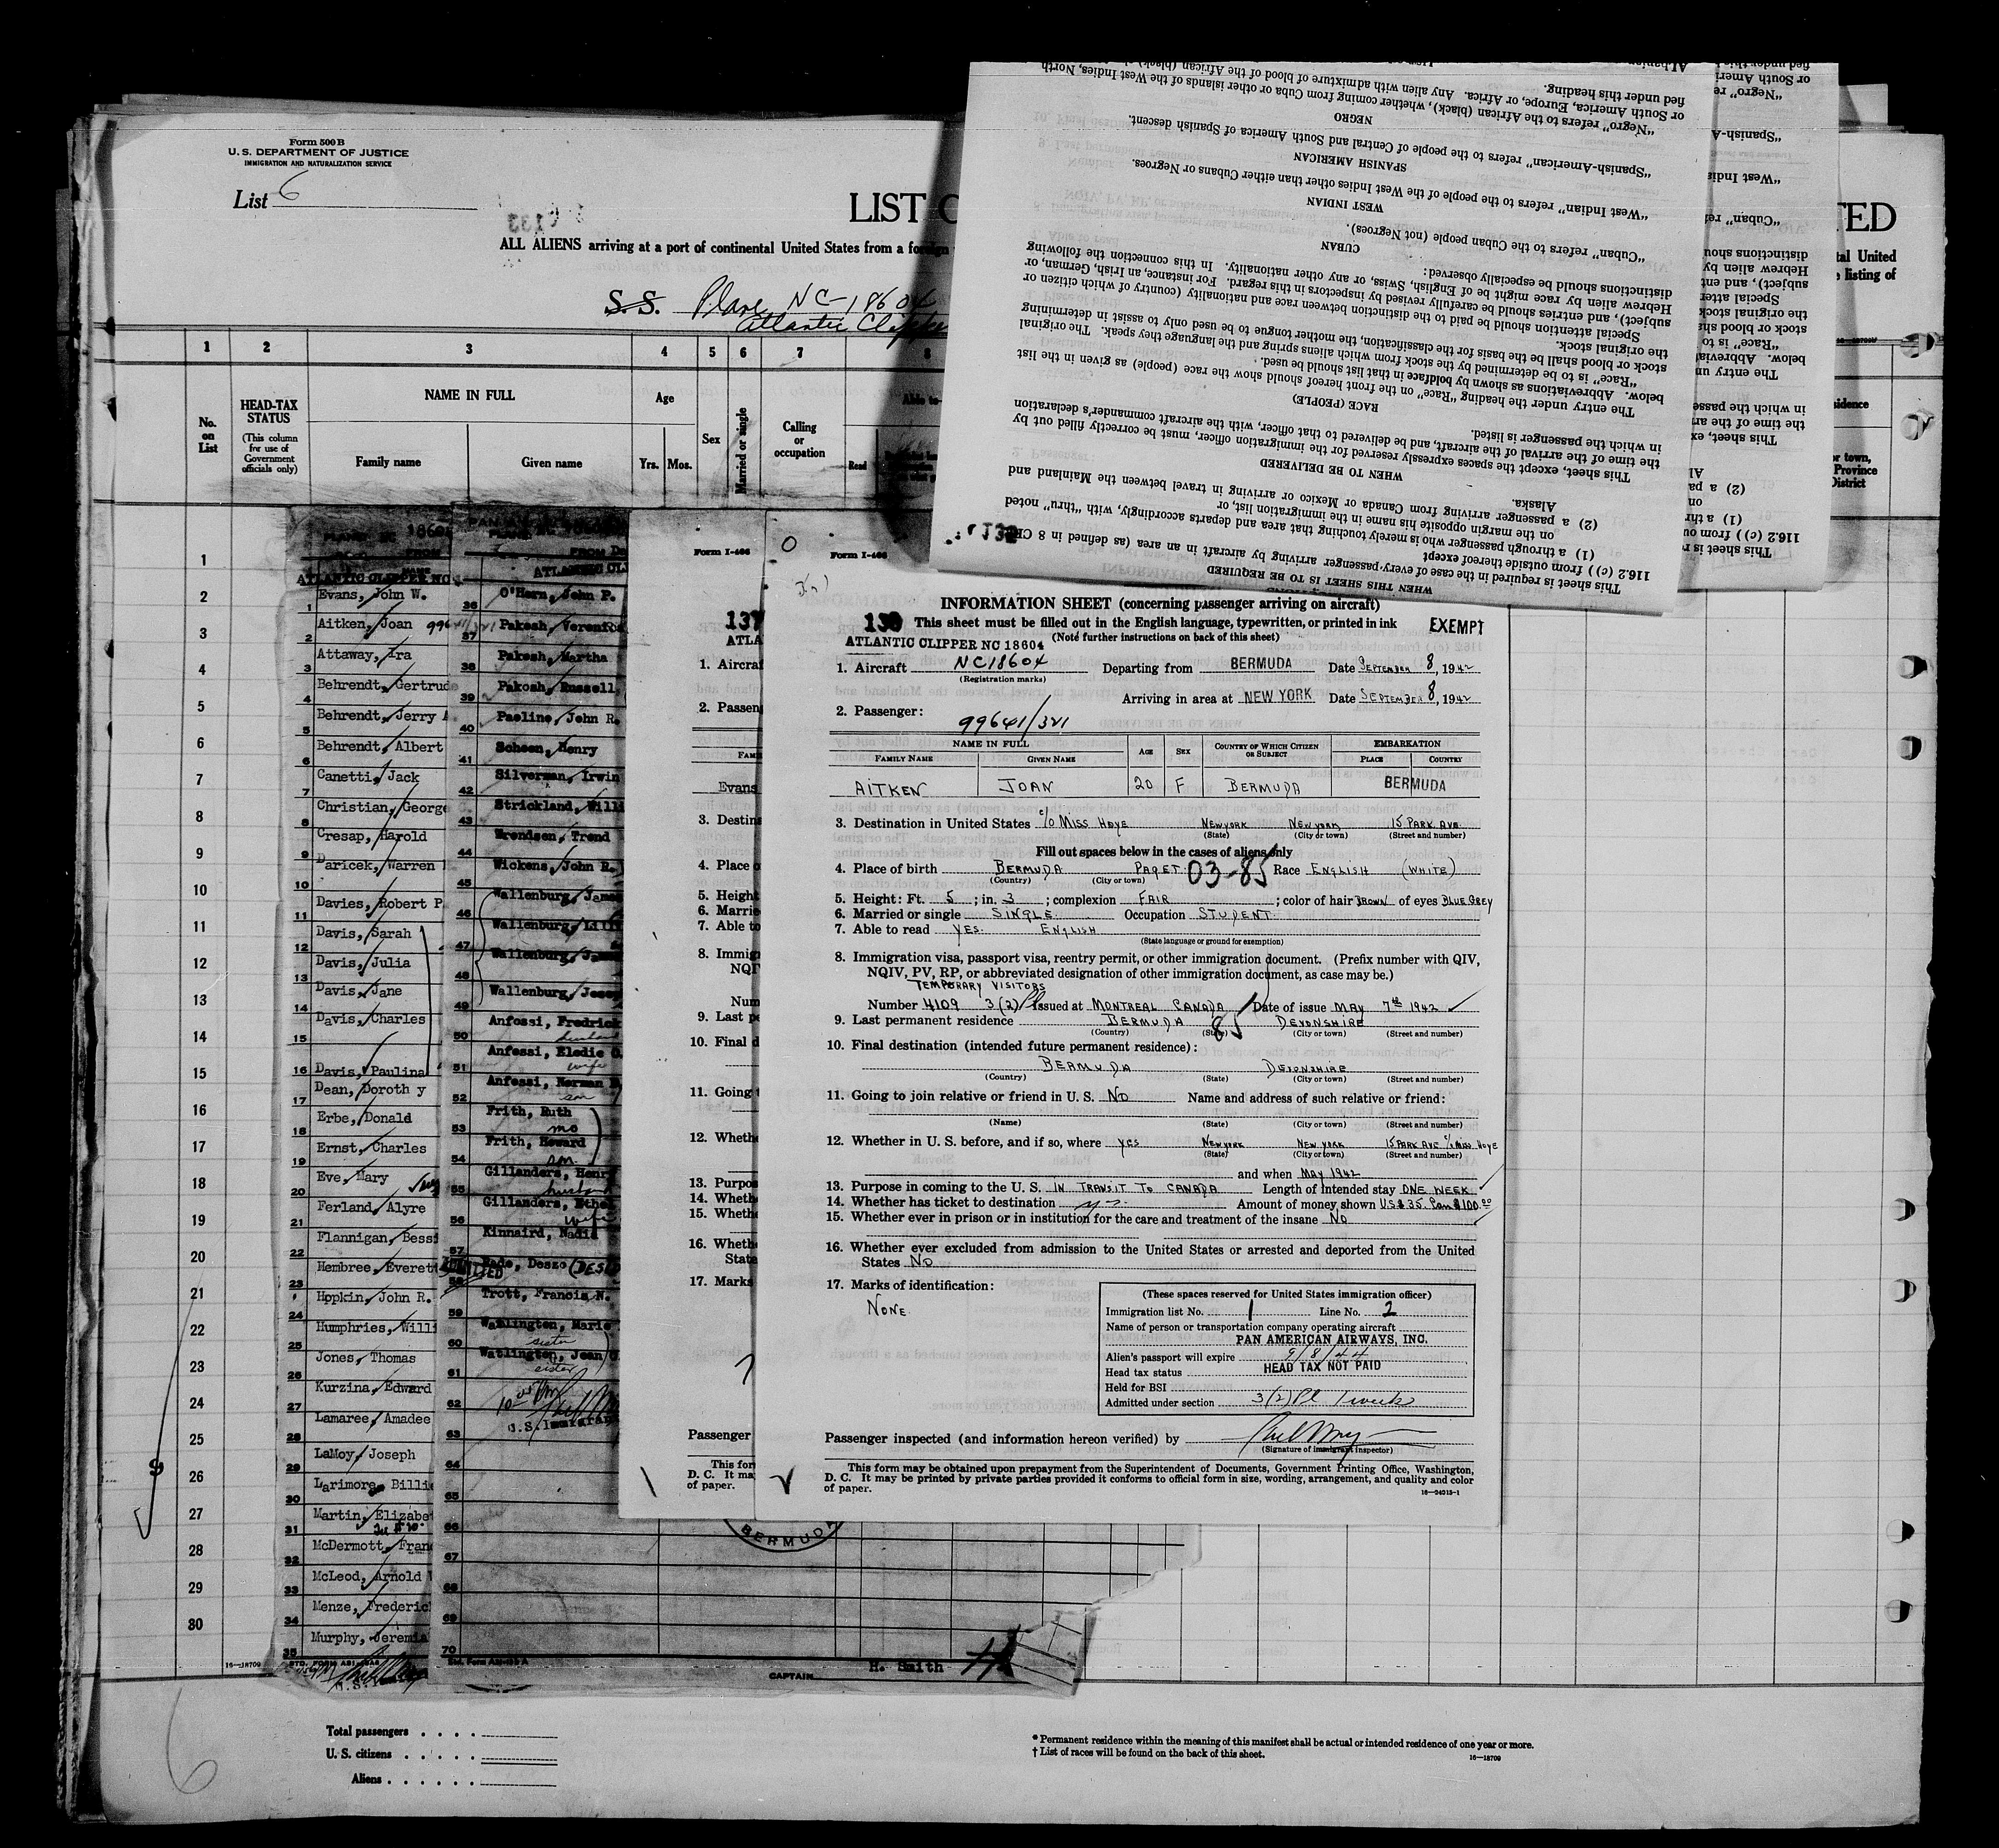 Form 500 B
U. S. DEPARTMENT OF JUSTICE
IMMIGRATION AND NATURALIZATION SERVICE
List 6
LIST
TED
ALL ALIENS arriving at a port of continental United States from a foreign
tal United
listing of
S. S. Plane NC-18604
Atlantic Clipper
1 2 3 4 5 6 7 8
No. on List
HEAD-TAX STATUS
(This column for use of Government officials only)
NAME IN FULL
Family name Given name
Age
Yrs. Mos.
Sex
Married or single
Calling or occupation
Able to
Read
or town,
Province
District
1
2
3
4
5
6
7
8
9
10
11
12
13
14
15
16
17
18
19
20
21
22
23
24
25
26
27
28
29
30
18604
FROM
NAME
ATLANTIC CLIPPER NC
1 Evans, John W.
2 Aitken, Joan 99641/321
3 Attaway, Ira
4 Behrendt, Gertrude
5 Behrendt, Jerry A
6 Behrendt, Albert
7 Canetti, Jack
8 Christian, George
9 Cresap, Harold
10 Daricek, Warren
11 Davies, Robert P.
12 Davis, Sarah
13 Davis, Julia
14 Davis, Jane
15 Davis, Charles
16 Davis, Paulina
17 Dean, Doroth y
18 Erbe, Donald
19 Ernst, Charles
20 Eve, Mary
21 Ferland, Alyre
22 Flannigan, Bessi
23 Hembree, Everett
24 Hopkin, John R.
25 Humphries, Willi
26 Jones, Thomas
27 Kurzina, Edward
28 Lamaree, Amadee
29 LaMoy, Joseph
30 Larimore, Billie
31 Martin, Elizabet
32 McDermott, Fran
33 McLeod, Arnold
34 Menze, Frederic
35 Murphy, Jeremia
16—18709
FROM
ATLANTIC CLI
36 O'Hern, John P.
37 Pakosh, Veronica
38 Pakosh, Martha
39 Pakosh, Russell
40 Paoline, John R.
41 Scheen, Henry
42 Silverman, Irwin
43 Strickland, Willi
44 Wrendsen, Trend
45 Wickens, John R.
46 Wallenburg, James
47 Wallenburg, Lill
48 Wallenburg, Jam
49 Wallenburg, Josep
50 Anfossi, Fredrick
husband
51 Anfossi, Elodie
wife
52 Anfossi, Norman
son
53 Frith, Ruth
mo
54 Frith, Howard
son
55 Gillanders, Henry
husband
56 Gillanders, Ethel
wife
57 Kinnaird, Nadia
58 Rado, Deszo
59 Trott, Francis N.
60 Watlington, Marie
sister
61 Watlington, Jean
sister
62
U.S. Immigran
63
64
65
66
67
68
69
70
BERMUDA
CAPTAIN H. Smith
Form I-466
137
ATLA
1. Aircraf
2. Passen
FAM
Evans
3. Destin
4. Place o
5. Height
6. Marrie
7. Able to
8. Immig
NQI
Num
9. Last pe
10. Final d
11. Going
12. Wheth
13. Purpo
14. Wheth
15. Wheth
16. Wheth
State
17. Marks
Passenger
This for
D. C. It ma
of paper.
Form I-466
INFORMATION SHEET (concerning passenger arriving on aircraft)
This sheet must be filled out in the English language, typewritten, or printed in ink
EXEMPT
(Note further instructions on back of this sheet)
ATLANTIC CLIPPER NC 18604
1. Aircraft NC18604 Departing from BERMUDA Date SEPTEMBER 8, 1942
(Registration marks)
Arriving in area at NEW YORK Date SEPTEMBER 8, 1942
2. Passenger:
99641/321
NAME IN FULL AGE SEX COUNTRY OF WHICH CITIZEN OR SUBJECT EMBARKATION
FAMILY NAME GIVEN NAME PLACE COUNTRY
AITKEN JOAN 20 F BERMUDA BERMUDA
3. Destination in United States c/o MISS HOYE NEW YORK NEW YORK 15 PARK AVE.
(State) (City or town) (Street and number)
Fill out spaces below in the cases of aliens only
4. Place of birth BERMUDA PAGET 03-85 Race ENGLISH (WHITE)
(Country) (City or town)
5. Height: Ft. 5; in. 3; complexion FAIR; color of hair BROWN of eyes BLUE GREY
6. Married or single SINGLE. Occupation STUDENT
7. Able to read YES. ENGLISH
(State language or ground for exemption)
8. Immigration visa, passport visa, reentry permit, or other immigration document. (Prefix number with QIV,
NQIV, PV, RP, or abbreviated designation of other immigration document, as case may be.)
TEMPORARY VISITORS
Number 4109 3(2) Issued at MONTREAL CANADA Date of issue MAY 7th 1942
9. Last permanent residence BERMUDA 85 DEVONSHIRE
(Country) (State) (City or town) (Street and number)
10. Final destination (intended future permanent residence):
BERMUDA DEVONSHIRE
(Country) (State) (City or town) (Street and number)
11. Going to join relative or friend in U. S. NO Name and address of such relative or friend:
(Name) (State) (City or town) (Street and number)
12. Whether in U. S. before, and if so, where YES NEW YORK NEW YORK 15 PARK AVE c/o MISS HOYE
(State) (City or town) (Street and number)
and when MAY 1942
13. Purpose in coming to the U. S. IN TRANSIT TO CANADA Length of intended stay ONE WEEK
14. Whether has ticket to destination yes Amount of money shown US $35. Can $100.00
15. Whether ever in prison or in institution for the care and treatment of the insane NO
16. Whether ever excluded from admission to the United States or arrested and deported from the United
States NO
17. Marks of identification:
NONE
(These spaces reserved for United States immigration officer)
Immigration list No. 1 Line No. 2
Name of person or transportation company operating aircraft
PAN AMERICAN AIRWAYS, INC.
Alien's passport will expire 9/8/44
Head tax status HEAD TAX NOT PAID
Held for BSI
Admitted under section 3(2) Pl 1 week
Passenger inspected (and information hereon verified) by
(Signature of immigrant inspector)
This form may be obtained upon prepayment from the Superintendent of Documents, Government Printing Office, Washington,
D. C. It may be printed by private parties provided it conforms to official form in size, wording, arrangement, and quality and color
of paper.
16—24013-1
WHEN THIS SHEET IS TO BE REQUIRED
This sheet is required in the case of every passenger arriving by aircraft in an area (as defined in 8 CFR
116.2 (c)) from outside thereof except
(1) a through passenger who is merely touching that area and departs accordingly, with "thru" noted
on the margin opposite his name in the immigration list, or
(2) a passenger arriving from Canada or Mexico or arriving in travel between the Mainland and
Alaska.
WHEN TO BE DELIVERED
This sheet, except the spaces expressly reserved for the immigration officer, must be correctly filled out by
the time of the arrival of the aircraft, and be delivered to that officer, with the aircraft commander's declaration
in which the passenger is listed.
RACE (PEOPLE)
The entry under the heading "Race" on the front hereof should show the race (people) as given in the list
below. Abbreviations as shown by boldface in that list should be used.
"Race" is to be determined by the stock from which aliens spring and the language they speak. The original
stock or blood shall be the basis for the classification, the mother tongue to be used only to assist in determining
the original stock.
Special attention should be paid to the distinction between race and nationality (country of which citizen or
subject), and entries should be carefully revised by inspectors in this regard. For instance, an Irish, German, or
Hebrew alien by race might be of English, Swiss, or any other nationality. In this connection the following
distinctions should be especially observed:
CUBAN
"Cuban" refers to the Cuban people (not Negroes).
WEST INDIAN
"West Indian" refers to the people of the West Indies other than either Cubans or Negroes.
SPANISH AMERICAN
"Spanish-American" refers to the people of Central and South America of Spanish descent.
NEGRO
"Negro" refers to the African (black), whether coming from Cuba or other islands of the West Indies, North
or South America, Europe, or Africa. Any alien with admixture of blood of the African (black)
fied under this heading.
Total passengers
U. S. citizens
Aliens
6
* Permanent residence within the meaning of this manifest shall be actual or intended residence of one year or more.
† List of races will be found on the back of this sheet.
16—18709